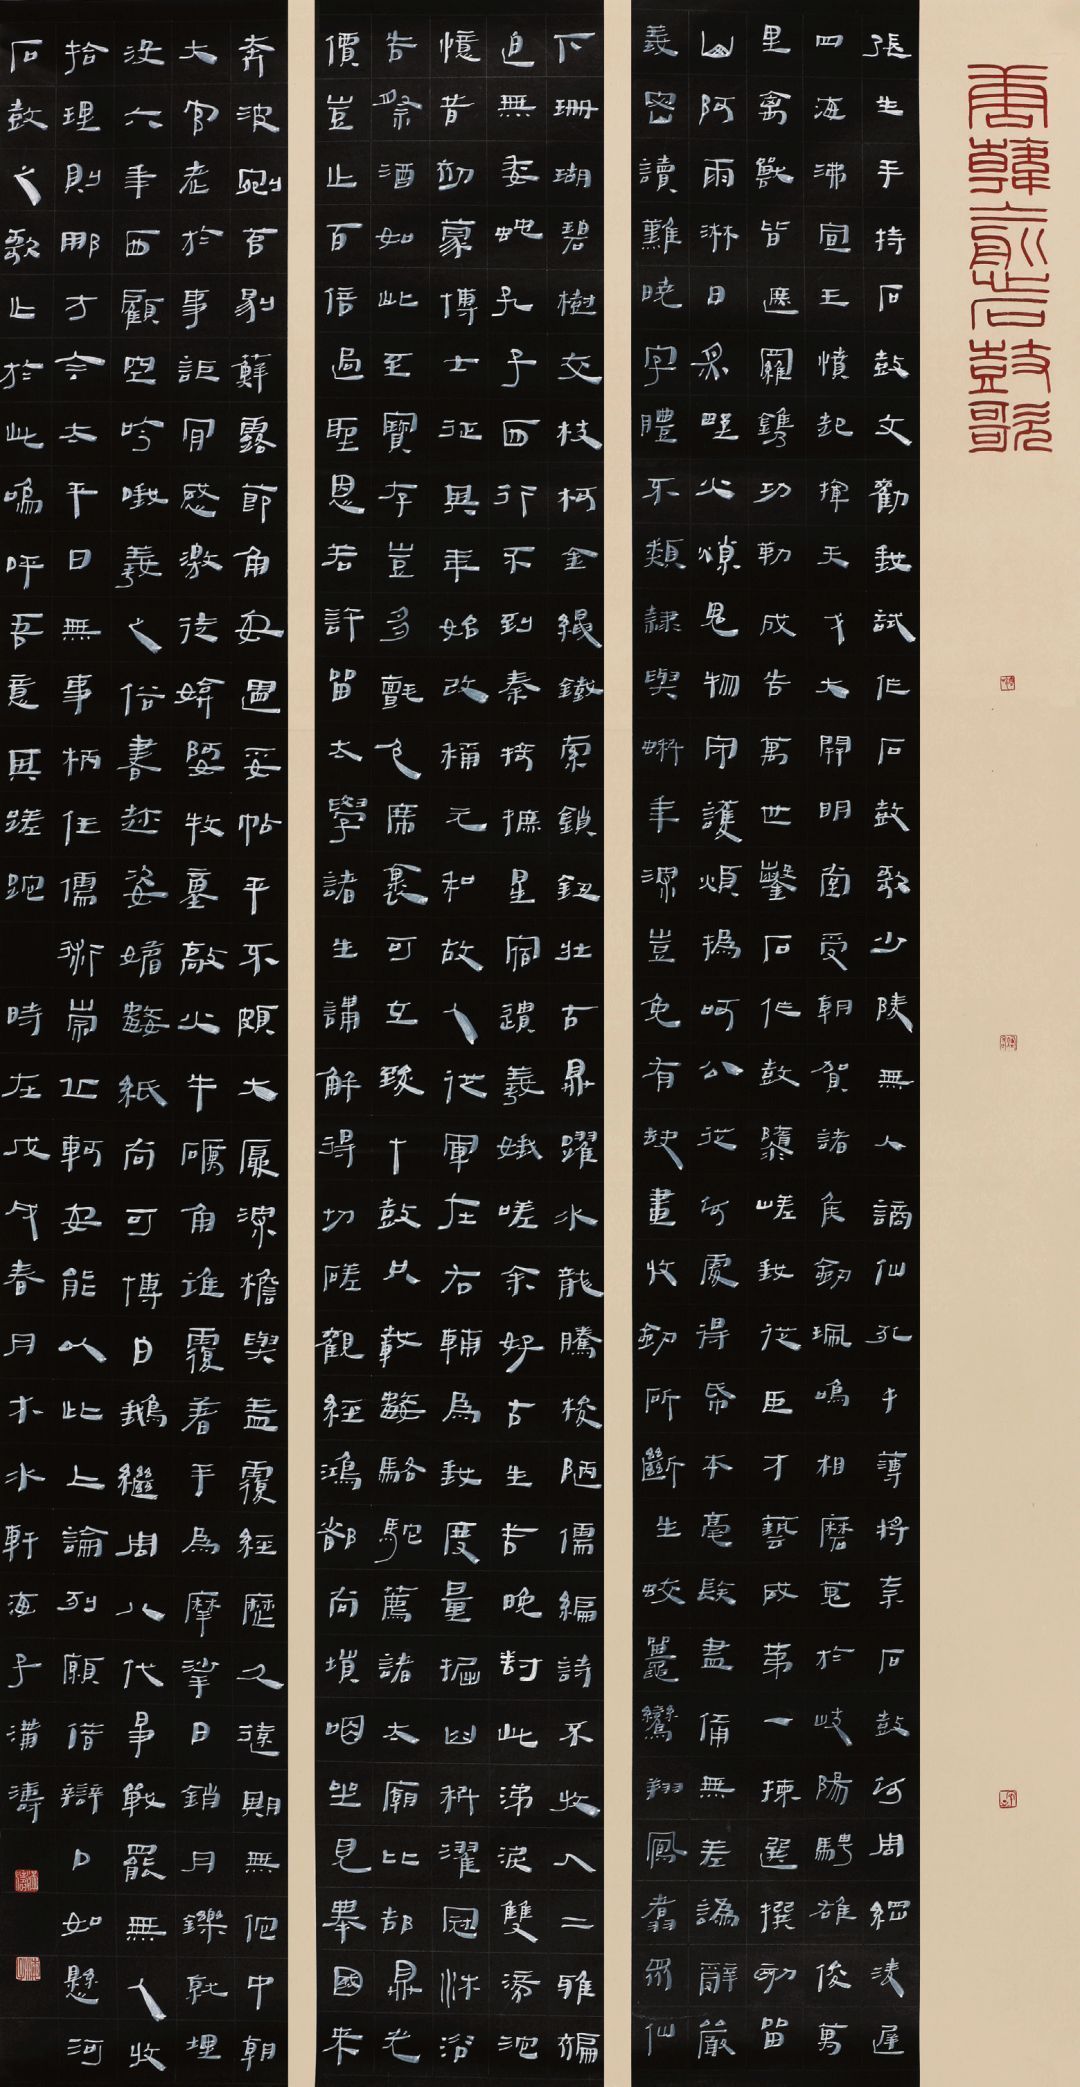 唐韓愈石鼓歌
張生手持石鼓文勸我試作石鼓歌少陵無人謫仙死才薄將奈石鼓何周綱淩遲
四海沸宣王憤起揮天戈大開明堂受朝賀諸侯劍珮鳴相磨蒐於岐陽騁雄俊萬
里禽獸皆遮羅鐫功勒成告萬世鑿石作鼓隳嵯峨從臣才藝咸第一揀選撰刻留
山阿雨淋日炙野火燎鬼物守護煩撝呵公從何處得紙本毫髮盡備無差訛辭嚴
義密讀難曉字體不類隸與蝌年深豈免有缺畫快劍斫斷生蛟鼉鸞翔鳳翥眾仙
下珊瑚碧樹交枝柯金繩鐵索鎖鈕壯古鼎躍水龍騰梭陋儒編詩不收入二雅褊
迫無委蛇孔子西行不到秦掎摭星宿遺羲娥嗟余好古生苦晚對此涕淚雙滂沱
憶昔初蒙博士征其年始改稱元和故人從軍在右輔為我度量掘臼科濯冠沐浴
告祭酒如此至寶存豈多氈包席裹可立致十鼓只載數駱駝薦諸太廟比郜鼎光
價豈止百倍過聖恩若許留太學諸生講解得切磋觀經鴻都尚填咽坐見舉國來
奔波剜苔剔蘚露節角安置妥帖平不頗大廈深檐與蓋覆經歷久遠期無佗中朝
大官老於事詎肯感激徒媕婀牧童敲火牛礪角誰復著手為摩挲日銷月鑠就埋
沒六年西顧空吟哦羲之俗書趁姿媚數紙尚可博白鵝繼周八代爭戰罷無人收
拾理則那方今太平日無事柄任儒術崇丘軻安能以此上論列願借辯口如懸河
石鼓之歌止於此嗚呼吾意其蹉跎 時在戊午春月木水軒海子濤